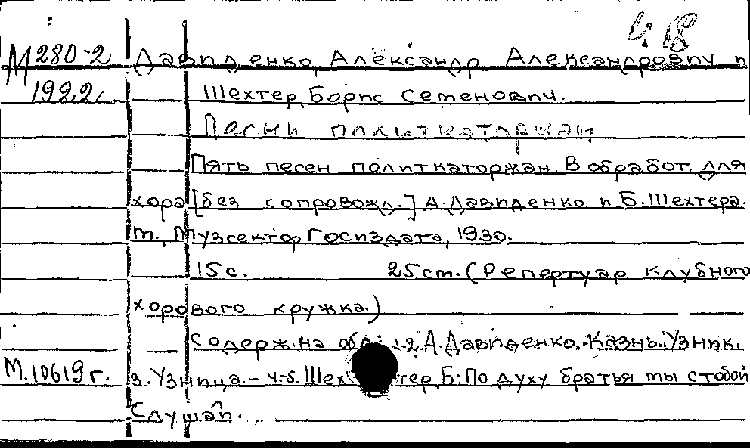 М 280-2 Давиденко, Александр Александрович и
199,2г. Шехтер, Борис Семенович.
Песни политкаторжан
Пять песен политкаторжан. В обработ. для
хора [без сопровожд.] А. Давиденко и Б. Шехтера.
М., Музсектор Госиздата, 1930.
15 с. 25 ст. (Репертуар клубного
хорового кружка.)
Содерж. на А. Давиденко. Казнь. Узник.
Узница. – 4-5. Шехтер, Б: По духу братья мы с тобой
М. 10619 г.
Слушай...